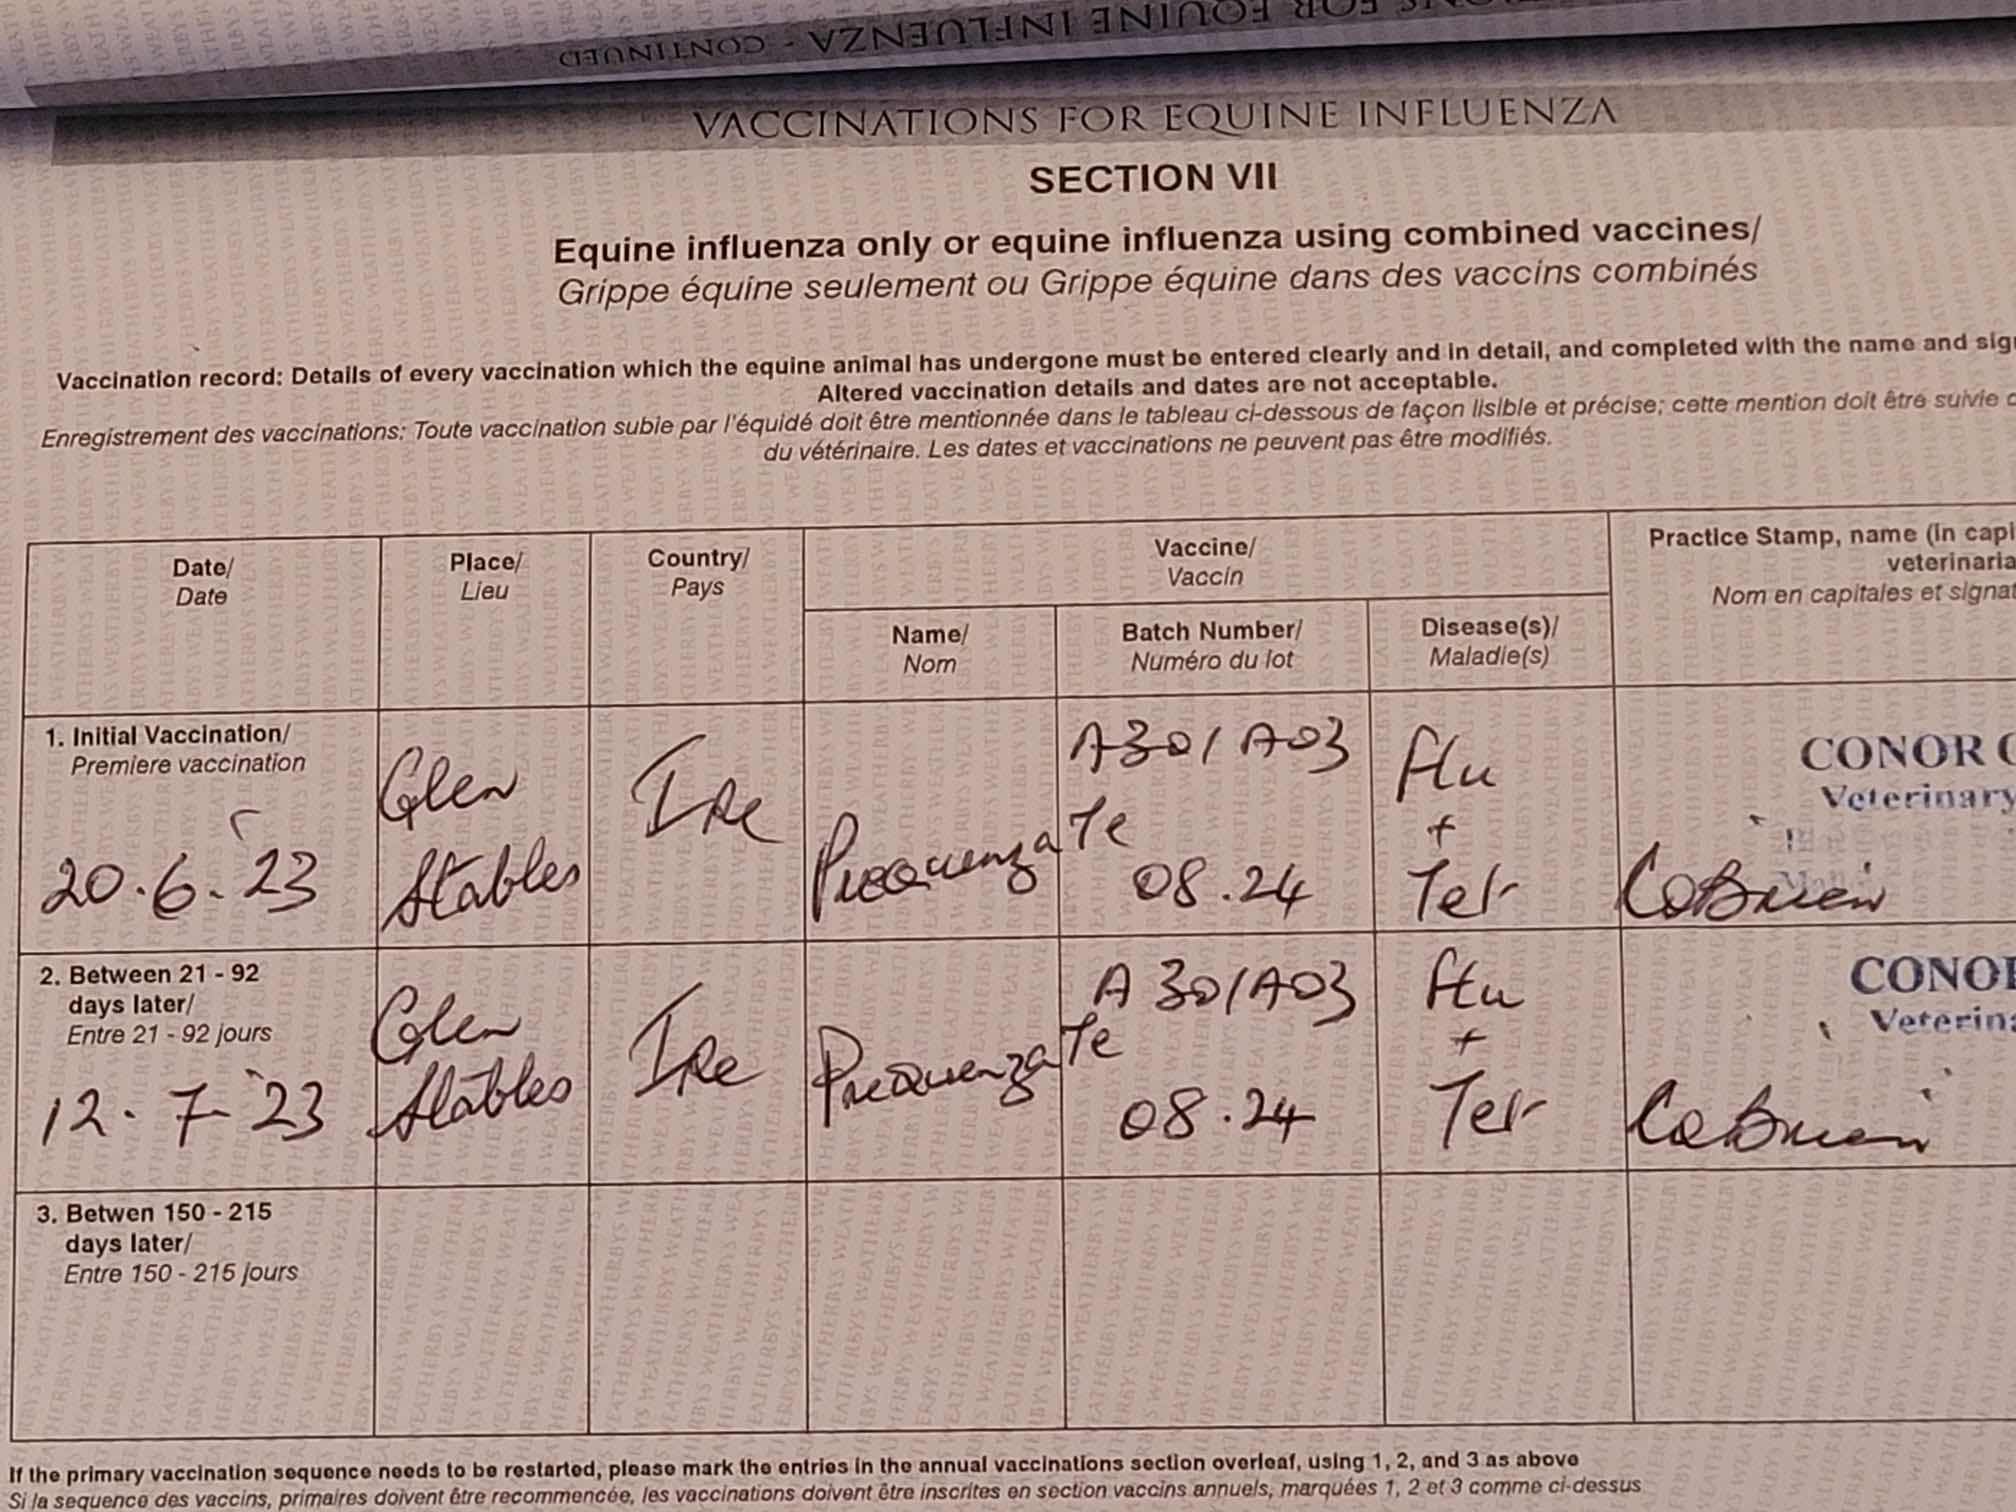 VACCINATIONS FOR EQUINE INFLUENZA - CONTINUED
VACCINATIONS FOR EQUINE INFLUENZA
SECTION VII
Equine influenza only or equine influenza using combined vaccines/
Grippe équine seulement ou Grippe équine dans des vaccins combinés
Vaccination record: Details of every vaccination which the equine animal has undergone must be entered clearly and in detail, and completed with the name and
Altered vaccination details and dates are not acceptable.
Enregistrement des vaccinations: Toute vaccination subie par l'équidé doit être mentionnée dans le tableau ci-dessous de façon lisible et précise; cette mention doit être suivie
du vétérinaire. Les dates et vaccinations ne peuvent pas être modifiés.
Date/
Date
Place/
Lieu
Country/
Pays
Vaccine/
Vaccin
Name/
Nom
Batch Number/
Numéro du lot
Disease(s)/
Maladie(s)
Practice Stamp, name (in
Nom en capitales et
1. Initial Vaccination/
Premiere vaccination
20.6.23
Glen
Stables
Ire
Prequenza Te
A301A03
08.24
Flu
+
Tet
CONOR
Veterinary
CO Brien
2. Between 21 - 92
days later/
Entre 21 - 92 jours
12.7.23
Glen
Stables
Ire
Prequenza Te
A301A03
08.24
Flu
+
Tet
CO Brien
3. Betwen 150 - 215
days later/
Entre 150 - 215 jours
If the primary vaccination sequence needs to be restarted, please mark the entries in the annual vaccinations section overleaf, using 1, 2, and 3 as above
Si la sequence des vaccins, primaires doivent être recommencée, les vaccinations doivent être inscrites en section vaccins annuels, marquées 1, 2 et 3 comme ci-dessus